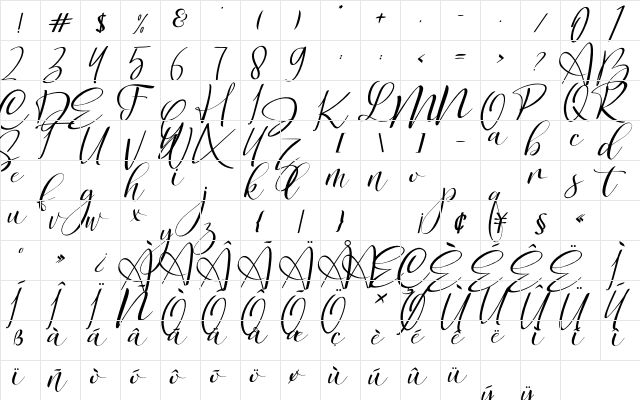 ! # $ % & ' ( ) * + , - . / 0 1
2 3 4 5 6 7 8 9 : ; < = > ? A B
C D E F G H I J K L M N O P Q R
S T U V W X Y Z [ \ ] _ a b c d
e f g h i j k l m n o p q r s t
u v w x y z { | } ¡ ¢ ¥ § «
° » ¿ À Á Â Ã Ä Å Æ Ç È É Ê Ë Ì
Í Î Ï Ñ Ò Ó Ô Õ Ö × Ø Ù Ú Û Ü Ý
ß à á â ã ä å æ ç è é ê ë ì í î
ï ñ ò ó ô õ ö ø ù ú û ü ý ÿ